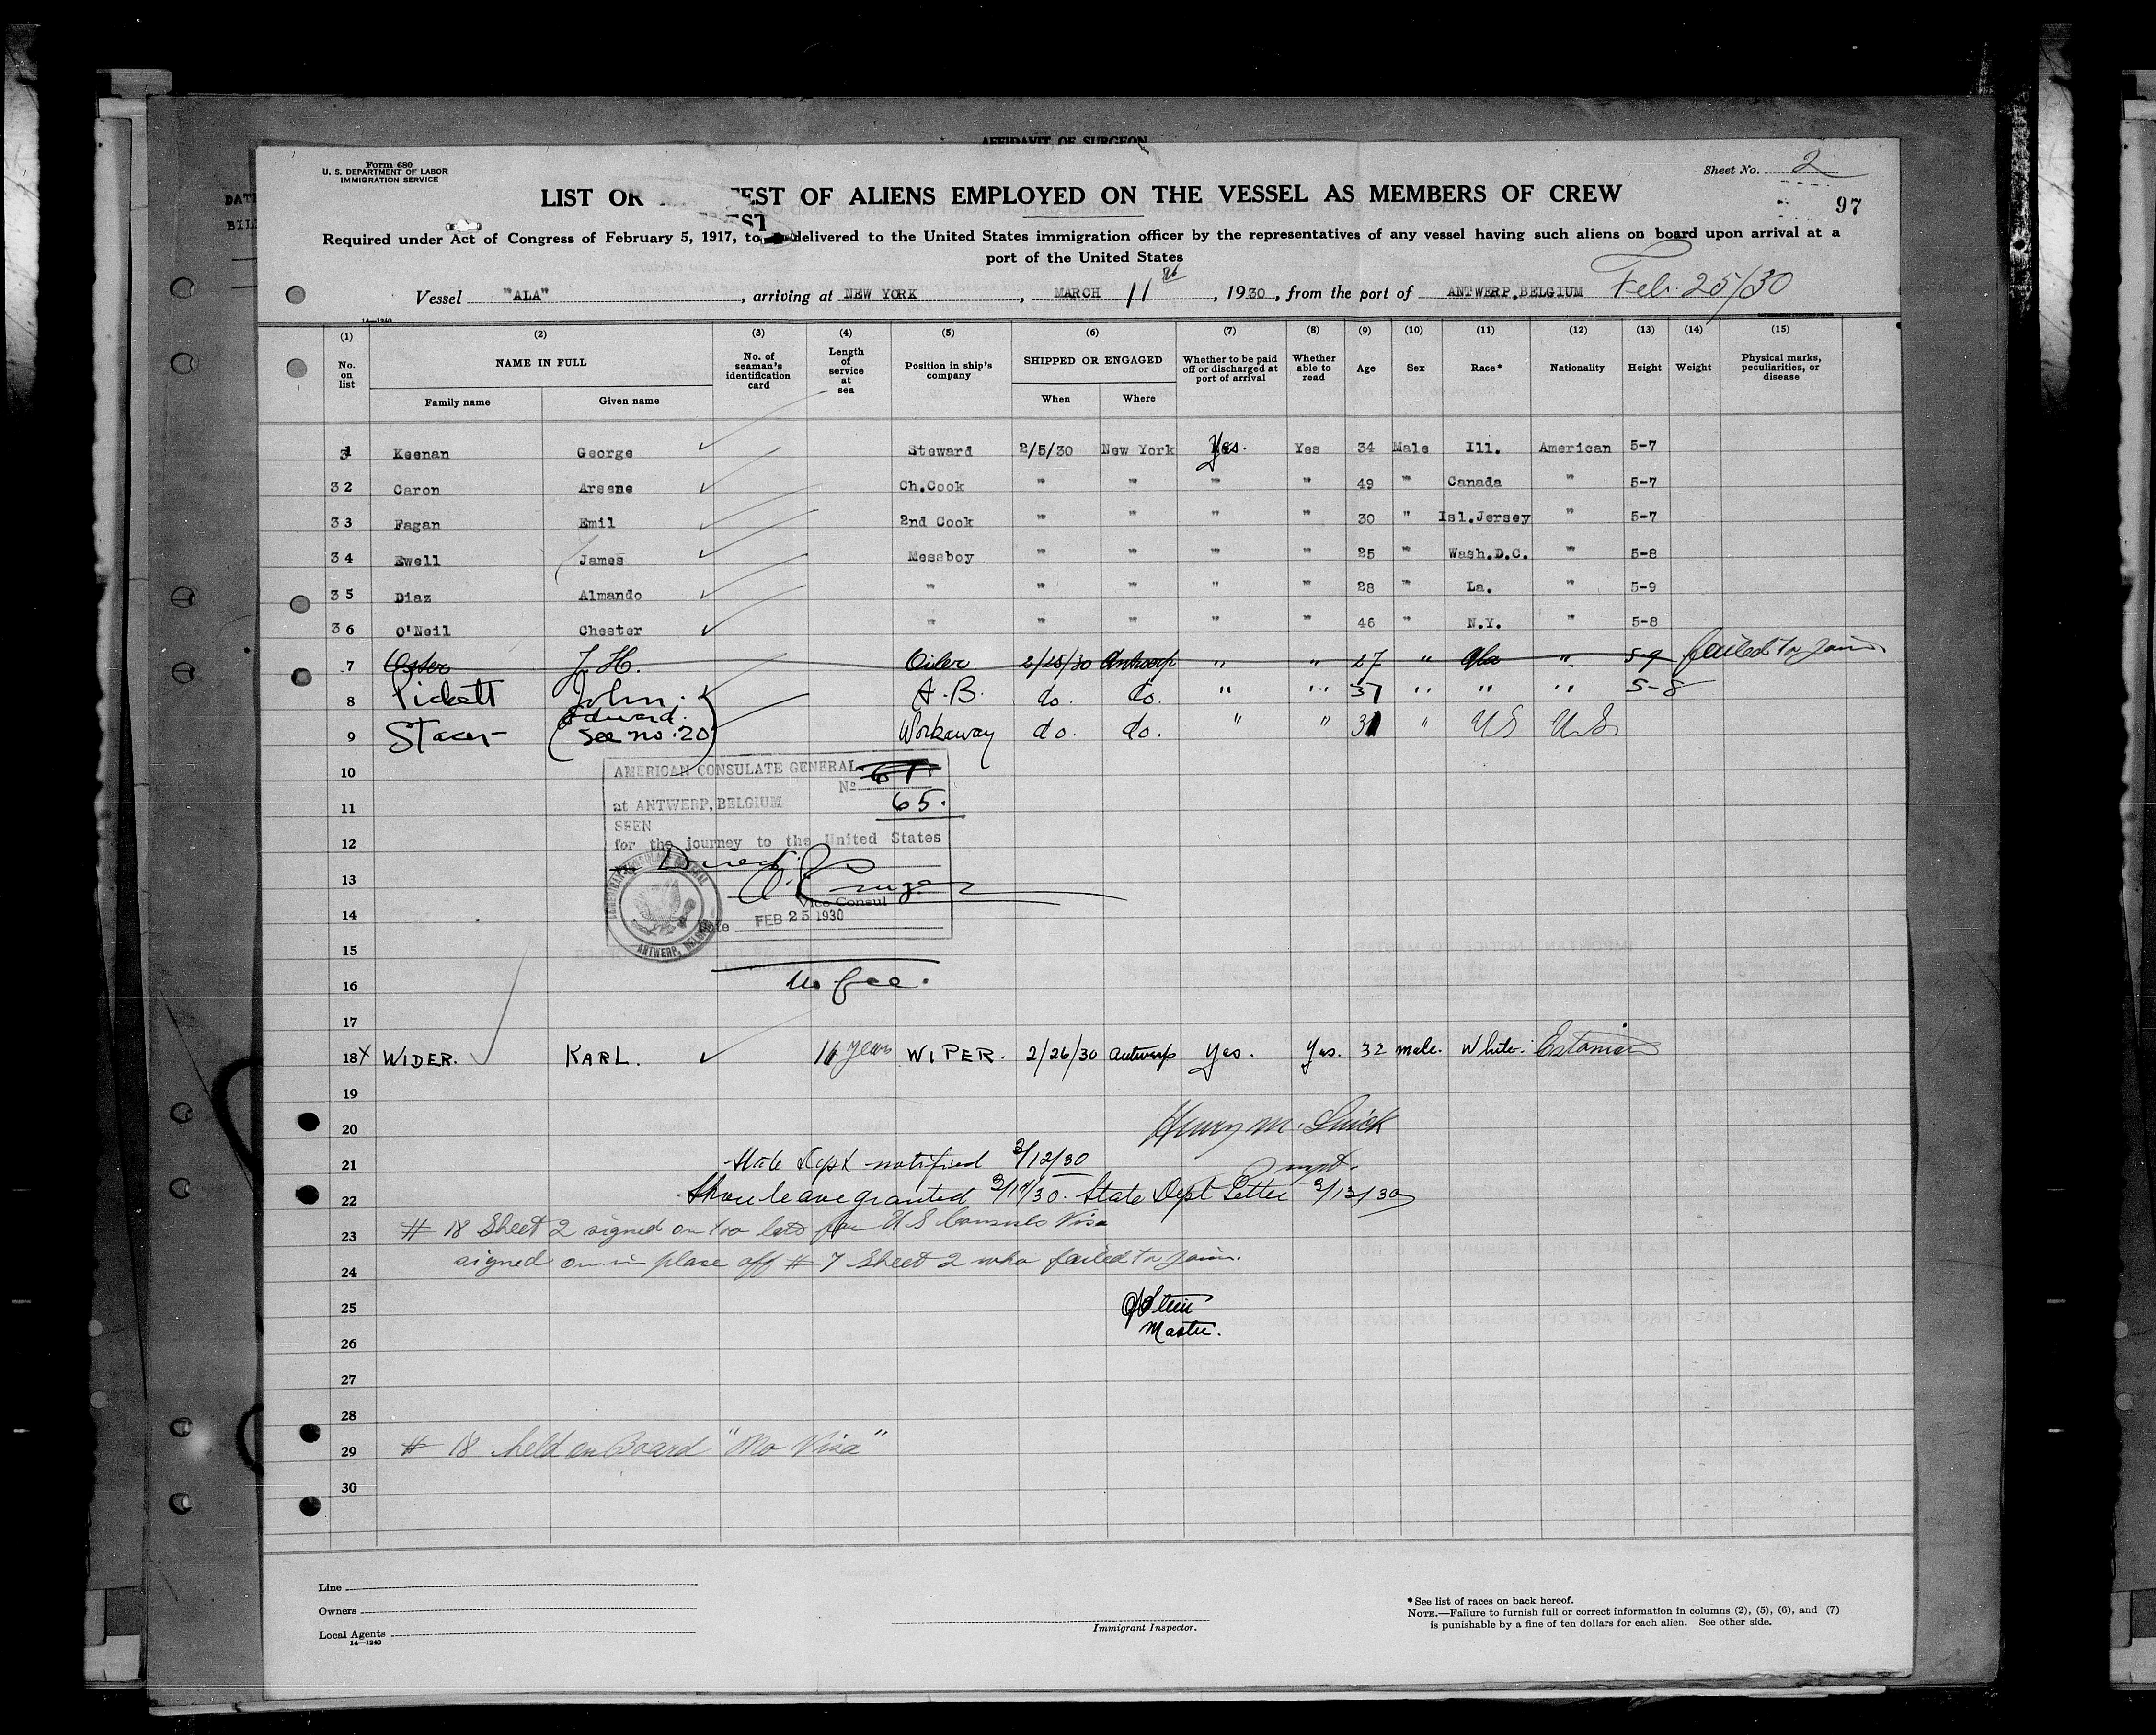 AFFIDAVIT OF SURGEON
Form 680
U. S. DEPARTMENT OF LABOR
IMMIGRATION SERVICE
Sheet No. 2
97
LIST OR EST OF ALIENS EMPLOYED ON THE VESSEL AS MEMBERS OF CREW
Required under Act of Congress of February 5, 1917, to delivered to the United States immigration officer by the representatives of any vessel having such aliens on board upon arrival at a
port of the United States
Vessel "ALA", arriving at NEW YORK, MARCH 11th, 1930, from the port of ANTWERP, BELGIUM Feb. 25/30
14—1240
(1) (2) (3) (4) (5) (6) (7) (8) (9) (10) (11) (12) (13) (14) (15)
No. on list NAME IN FULL No. of seaman's identification card Length of service at sea Position in ship's company SHIPPED OR ENGAGED Whether to be paid off or discharged at port of arrival Whether able to read Age Sex Race* Nationality Height Weight Physical marks, peculiarities, or disease
Family name Given name When Where
31 Keenan George Steward 2/5/30 New York Yes. Yes 34 Male Ill. American 5-7
32 Caron Arsene Ch.Cook " " " " 49 " Canada " 5-7
33 Fagan Emil 2nd Cook " " " " 30 " Isl.Jersey " 5-7
34 Ewell James Messboy " " " " 25 " Wash.D.C. " 5-8
35 Diaz Almando " " " " " 28 " La. " 5-9
36 O'Neil Chester " " " " " 46 " N.Y. " 5-8
7 J. H. Oiler 2/25/30 Antwerp " " 27 " Ala " 5-9 failed to join
8 Pickett John A.B. do. do. " " 37 " " " 5-8
9 Edward (See no. 20) Workaway do. do. " " 31 " US U.S.
10
11
12
13
14
15
16
17
AMERICAN CONSULATE GENERAL
No. 65.
at ANTWERP, BELGIUM
SEEN
for the journey to the United States
Direct
Vice Consul
Date FEB 25 1930
ANTWERP, BELGIUM
no fee.
18 X WIDER. KARL. 16 years WIPER. 2/26/30 Antwerp Yes. Yes. 32 male. White. Estonian
19
20 Henry M.
21 State Dept notified 3/12/30
22 Shore leave granted State Dept Letter 3/13/30
23 # 18 Sheet 2 signed on too late for U S Consuls Visa
24 signed on in place off # 7 Sheet 2 who failed to join.
25
26 Master.
27
28
29 # 18 held on Board "No Visa"
30
Line
Owners
Local Agents
14—1240
Immigrant Inspector.
*See list of races on back hereof.
NOTE.—Failure to furnish full or correct information in columns (2), (5), (6), and (7)
is punishable by a fine of ten dollars for each alien. See other side.